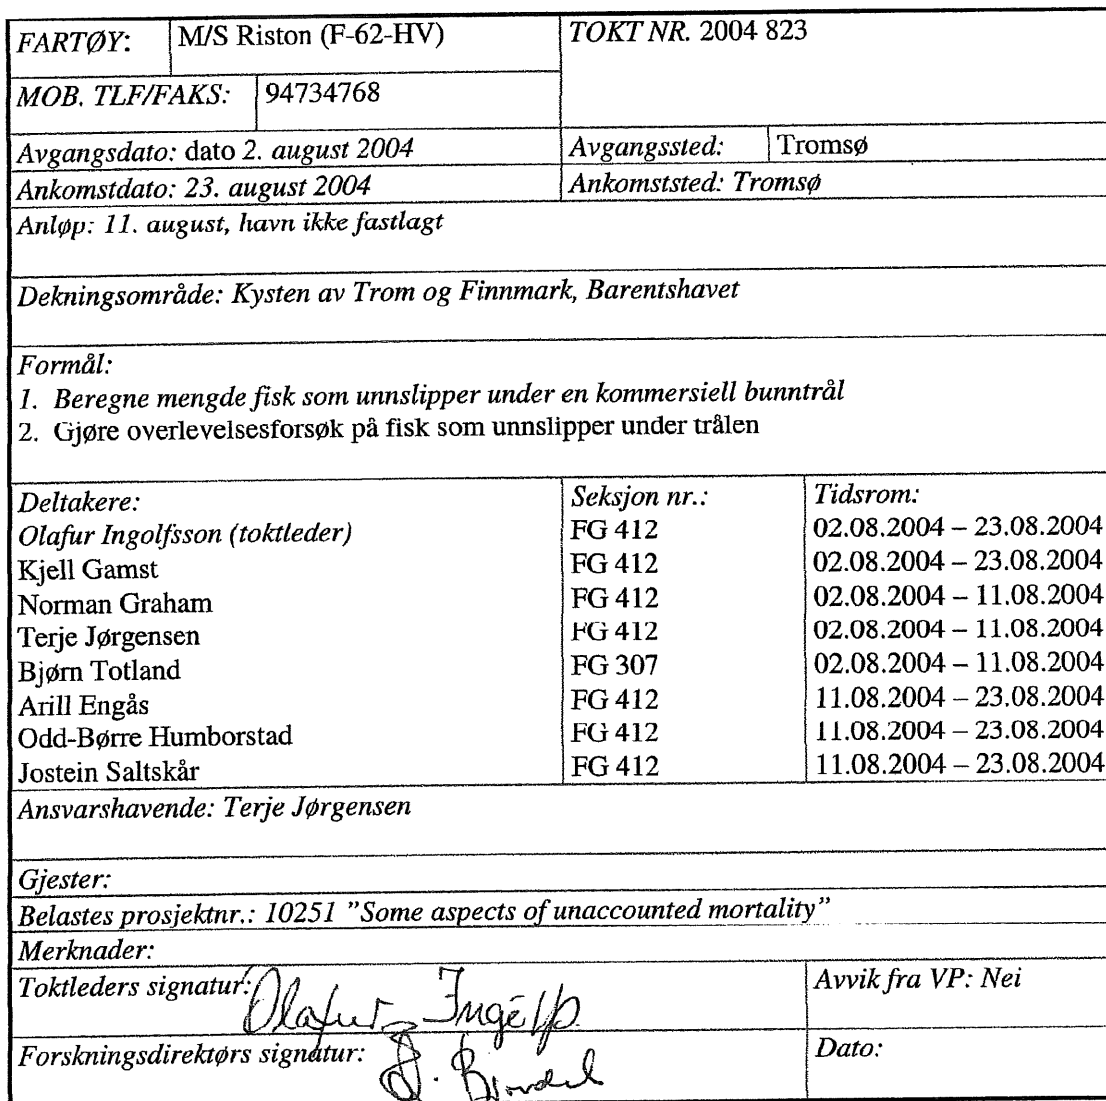 FARTØY: M/S Riston (F-62-HV) TOKT NR. 2004 823
MOB. TLF/FAKS: 94734768
Avgangsdato: dato 2. august 2004 Avgangssted: Tromsø
Ankomstdato: 23. august 2004 Ankomststed: Tromsø
Anløp: 11. august, havn ikke fastlagt
Dekningsområde: Kysten av Trom og Finnmark, Barentshavet
Formål:
1. Beregne mengde fisk som unnslipper under en kommersiell bunntrål
2. Gjøre overlevelsesforsøk på fisk som unnslipper under trålen
Deltakere: Seksjon nr.: Tidsrom:
Olafur Ingolfsson (toktleder) FG 412 02.08.2004 – 23.08.2004
Kjell Gamst FG 412 02.08.2004 – 23.08.2004
Norman Graham FG 412 02.08.2004 – 11.08.2004
Terje Jørgensen FG 412 02.08.2004 – 11.08.2004
Bjørn Totland FG 307 02.08.2004 – 11.08.2004
Arill Engås FG 412 11.08.2004 – 23.08.2004
Odd-Børre Humborstad FG 412 11.08.2004 – 23.08.2004
Jostein Saltskår FG 412 11.08.2004 – 23.08.2004
Ansvarshavende: Terje Jørgensen
Gjester:
Belastes prosjektnr.: 10251 "Some aspects of unaccounted mortality"
Merknader:
Toktleders signatur: Olafur Avvik fra VP: Nei
Forskningsdirektørs signatur: Dato: